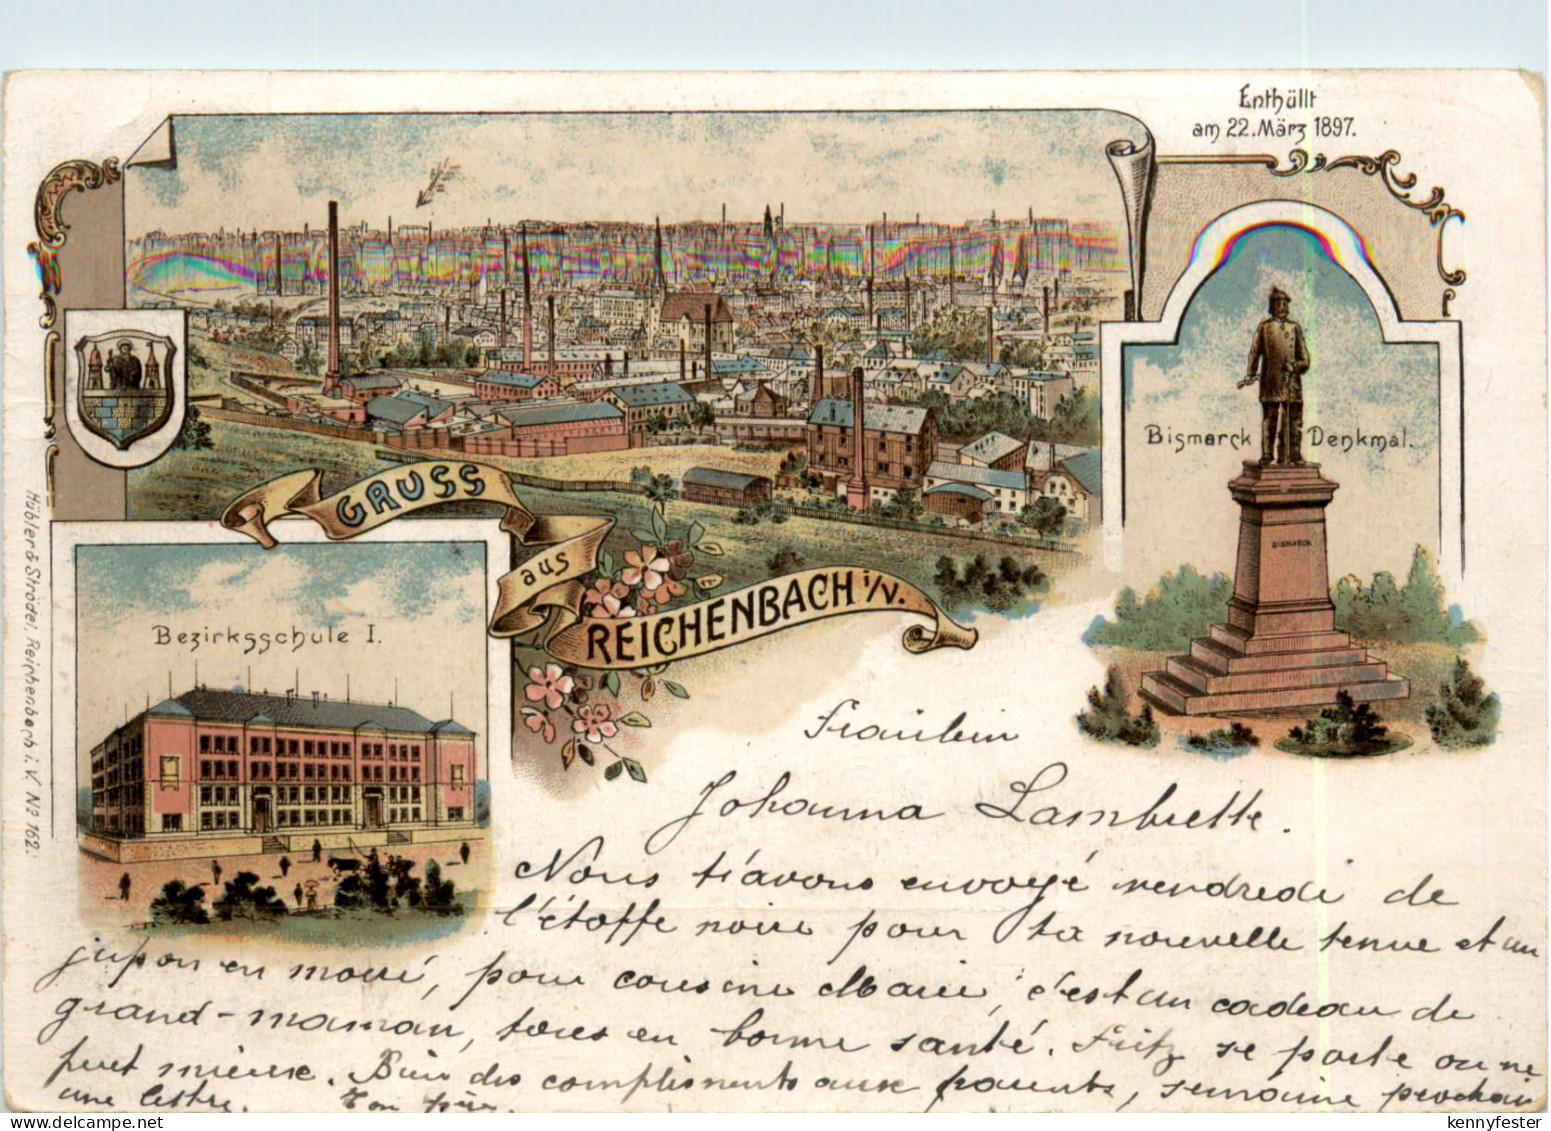 Enthüllt
am 22. März 1897.
Bismarck Denkmal.
BISMARCK
GRUSS
aus
REICHENBACH i/V.
Bezirksschule I.
Hübler & Strödel, Reichenbach i. V. No 162.
Fräulein
Johanna Lambrette.
Nous t'avons envoyé vendredi de
l'étoffe noire pour ta nouvelle tenue et un
jupon en moiré, pour cousine Marie, c'est un cadeau de
grand-maman, tous en bonne santé. Fritz se porte on ne
peut mieux. Bien des compliments aux parents, semaine prochain
une lettre. Ton père.
kennyfester